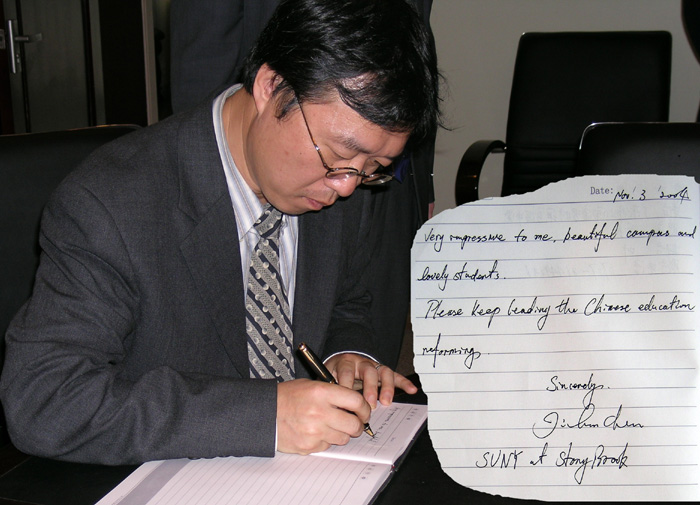 Date: Nov. 3 '2004
Very impressive to me, beautiful campus and
lovely students.
Please keep leading the Chinese education
reformings.
Sincerely.
Chen
SUNY at StonyBrook